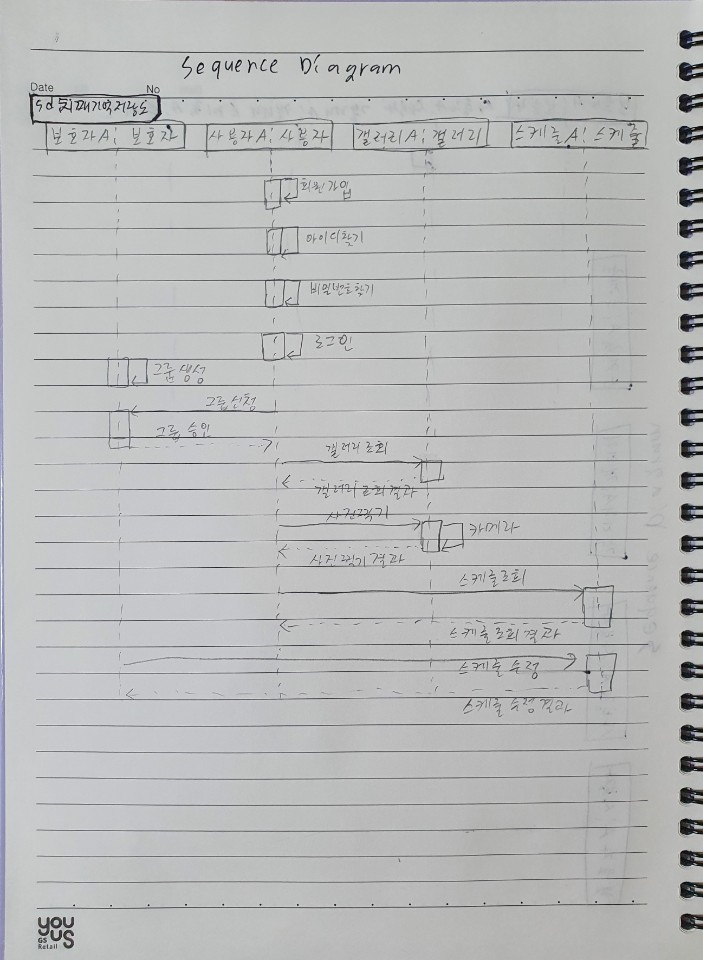 Sequence Diagram
Date No
sd 치매기억저장소
보호자A: 보호자 사용자A: 사용자 갤러리A: 갤러리 스케줄A: 스케줄
회원가입
아이디찾기
비밀번호찾기
로그인
그룹생성
그룹신청
그룹 승인
갤러리조회
갤러리조회결과
사진찍기
카메라
사진찍기결과
스케줄조회
스케줄조회결과
스케줄 수정
스케줄 수정결과
you us
GS Retail